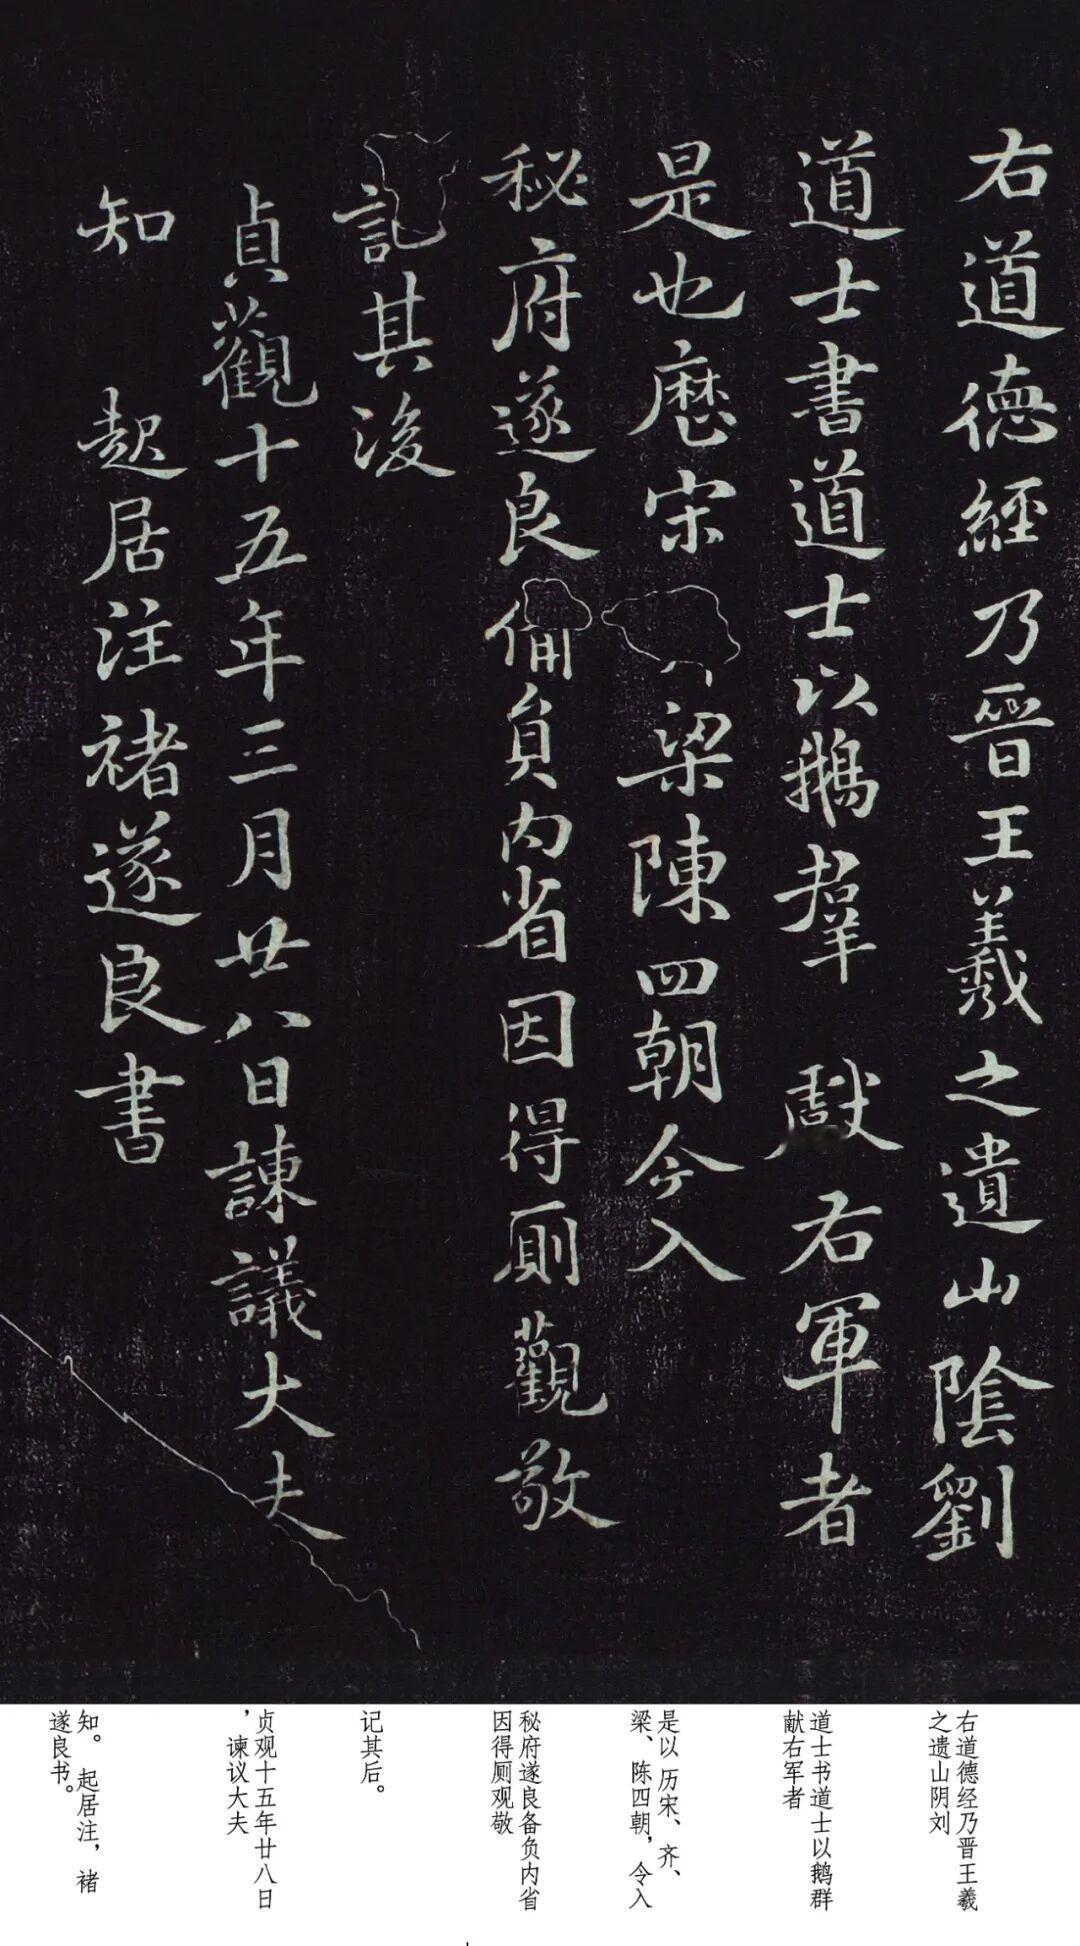 右道德經乃晉王羲之遺山陰劉
道士書道士以鵝羣獻右軍者
是也歷宋梁陳四朝今入
秘府遂良備負內省因得厠觀敬
記其後
貞觀十五年三月廿八日諫議大夫
知 起居注褚遂良書
右道德经乃晋王羲
之遗山阴刘
道士书道士以鹅群
献右军者
是以历宋、齐、
梁、陈四朝，令入
秘府遂良备负内省
因得厕观敬
记其后。
贞观十五年廿八日
，谏议大夫
知。起居注，褚
遂良书。